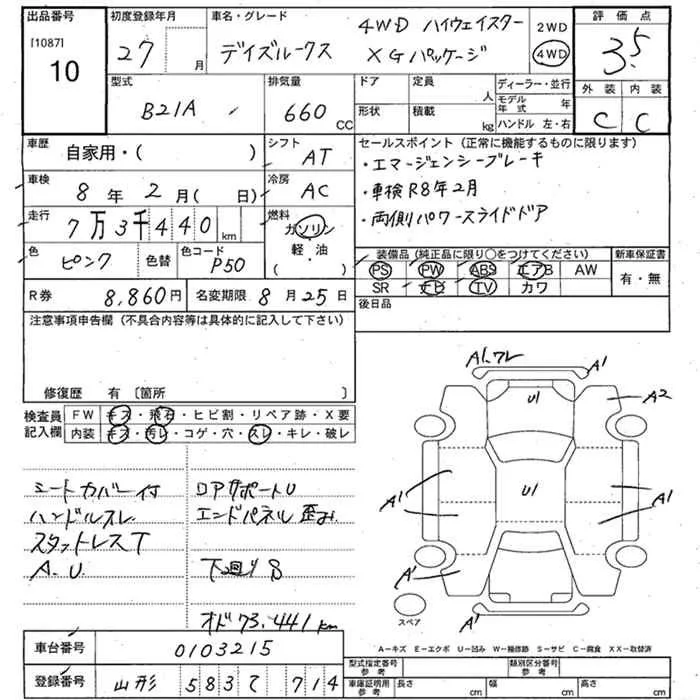 出品番号
[1087]
10
初度登録年月
27 月
車名・グレード
4WD ハイウェイスター
デイズルークス XGパッケージ
2WD
4WD
評価点
3.5
外装 内装
C C
型式
B21A
排気量
660 CC
ドア 定員 人
形状 積載 kg
ディーラー・並行
モデル年式 年
ハンドル 左・右
車歴
自家用・( )
シフト
AT
車検
8年 2月( 日)
冷房
AC
走行
7万3千440 km
燃料
ガソリン
軽・油
( )
色
ピンク
色替
色コード
P50
セールスポイント(正常に機能するものに限ります)
・エマージェンシーブレーキ
・車検R8年2月
・両側パワースライドドア
装備品(純正品に限り○をつけてください)
新車保証書
PS PW ABS エアB AW
有・無
SR ナビ TV カワ
後日品
R券 8,860円 名変期限 8月25日
注意事項申告欄(不具合内容等は具体的に記入して下さい)
修復歴 有〔箇所 〕
検査員記入欄
FW キズ・飛石・ヒビ割・リペア跡・X要
内装 キズ・汚レ・コゲ・穴・スレ・キレ・破レ
シートカバー付
ハンドルスレ
スタットレスT
A.U
コアサポートU
エンドパネル歪み
下回りS
オド73,441km
A1.ワレ
A1
U1
A2
A1
U1
A1
A1
A1
スペア
A-キズ E-エクボ U-凹み W-補修跡 S-サビ C-腐食 XX-取替済
車台番号
0103215
登録番号
山形 583 て 714
型式指定番号 参考
類別区分番号 参考
車庫証明用 参考
長さ cm
幅 cm
高さ cm